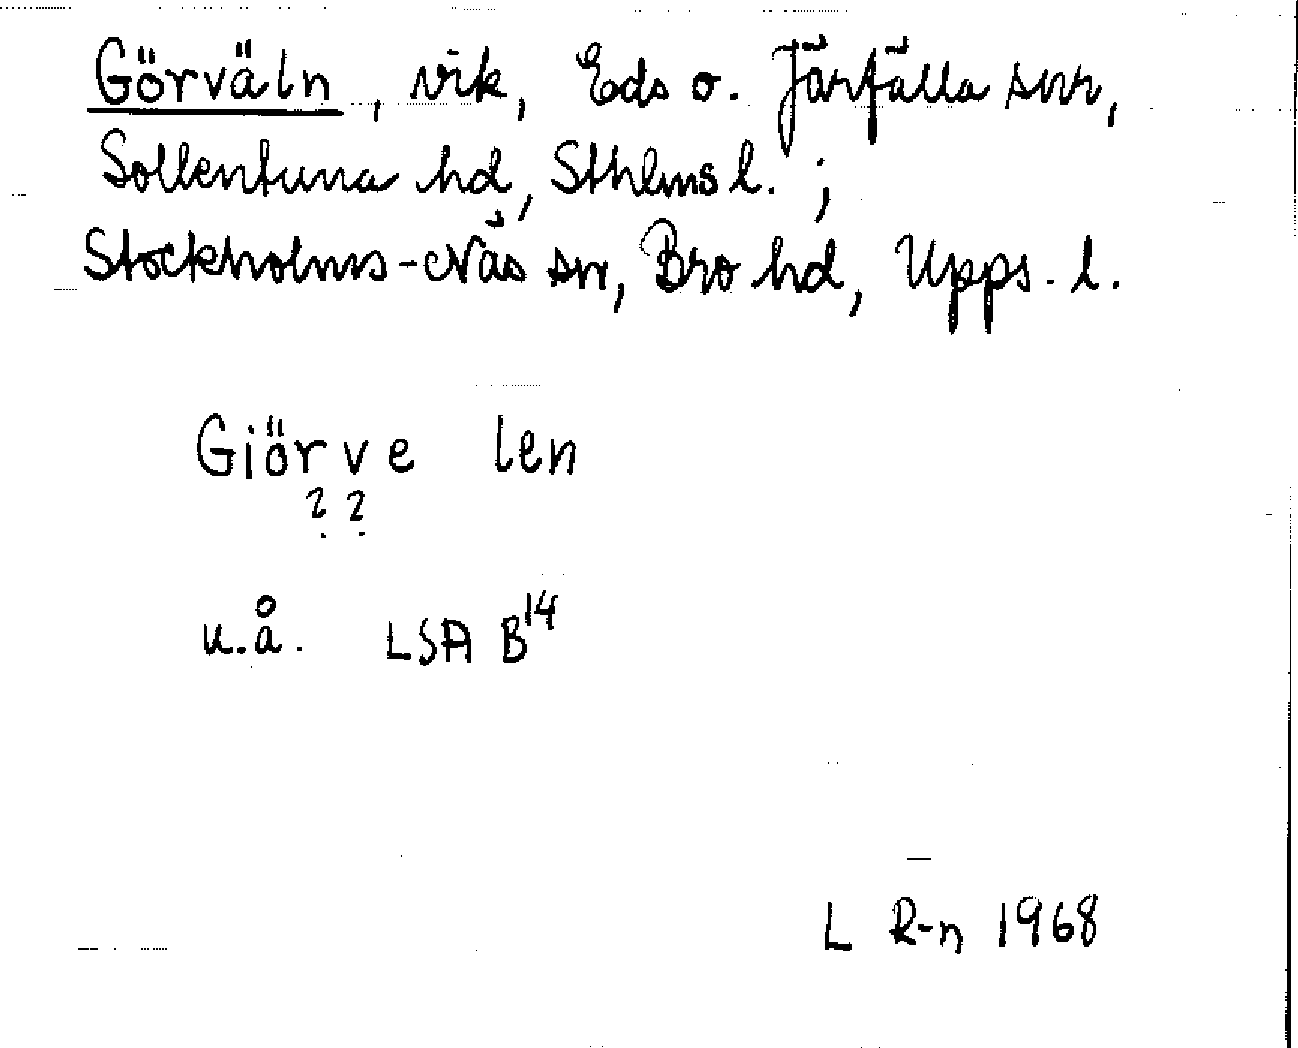 Görväln, vik, Eds o. Järfälla snr,
Sollentuna hd, Sthlms l. ;
Stockholms-Näs sn, Bro hd, Upps. l.
Giörve len
? ?
u.å. LSA B14
L R-n 1968